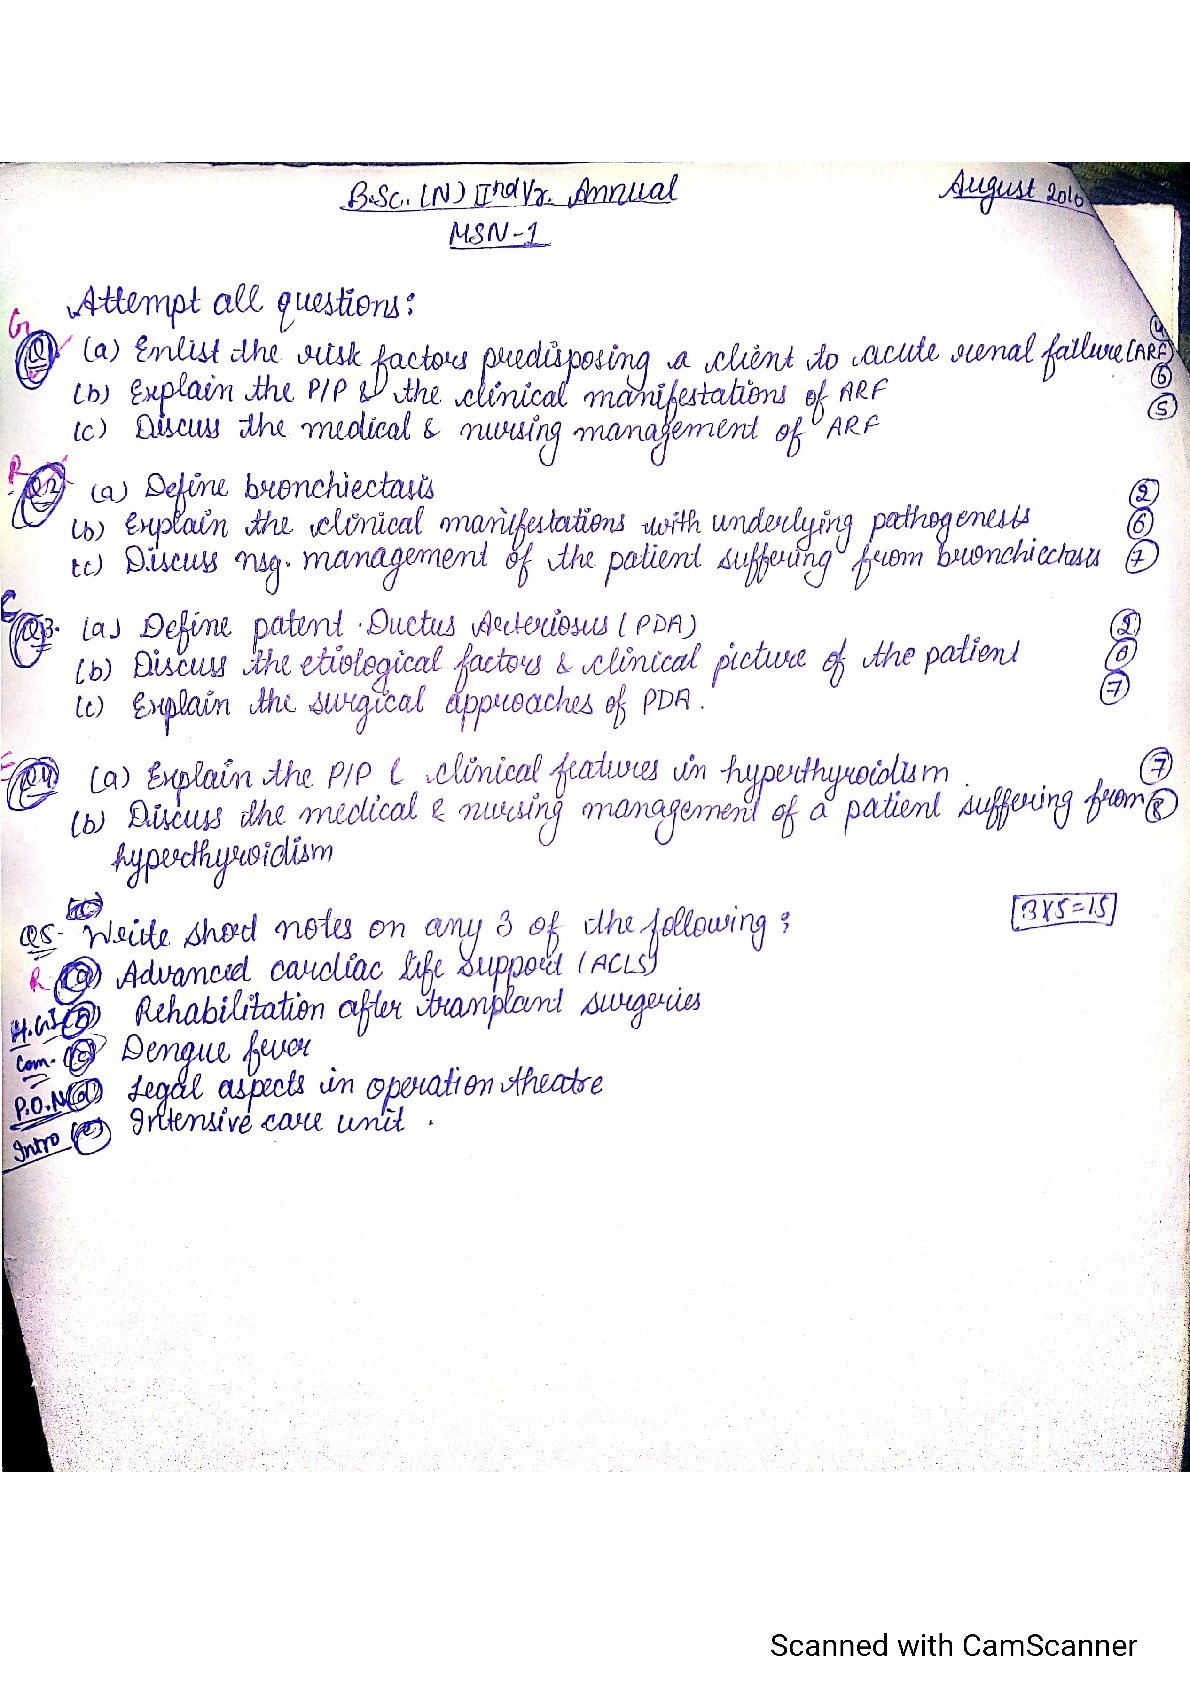 B.Sc. (N) IInd Yr. Annual August 2016
MSN-1
Attempt all questions:
G Q1 (a) Enlist the risk factors predisposing a client to acute renal failure (ARF) 4
(b) Explain the P/P & the clinical manifestations of ARF 6
(c) Discuss the medical & nursing management of ARF 5
R Q2 (a) Define bronchiectasis 2
(b) Explain the clinical manifestations with underlying pathogenesis 6
(c) Discuss nsg. management of the patient suffering from bronchiectasis 7
C Q3. (a) Define patent Ductus Arteriosus (PDA) 2
(b) Discuss the etiological factors & clinical picture of the patient 6
(c) Explain the surgical approaches of PDA. 7
E Q4 (a) Explain the P/P & clinical features in hyperthyroidism 7
(b) Discuss the medical & nursing management of a patient suffering from 8
hyperthyroidism
Q5- Write short notes on any 3 of the following: 3x5=15
R (a) Advanced cardiac life support (ACLS)
(b) Rehabilitation after tranplant surgeries
Com. (c) Dengue fever
P.O.N (d) Legal aspects in operation theatre
Intro (e) Intensive care unit.
Scanned with CamScanner